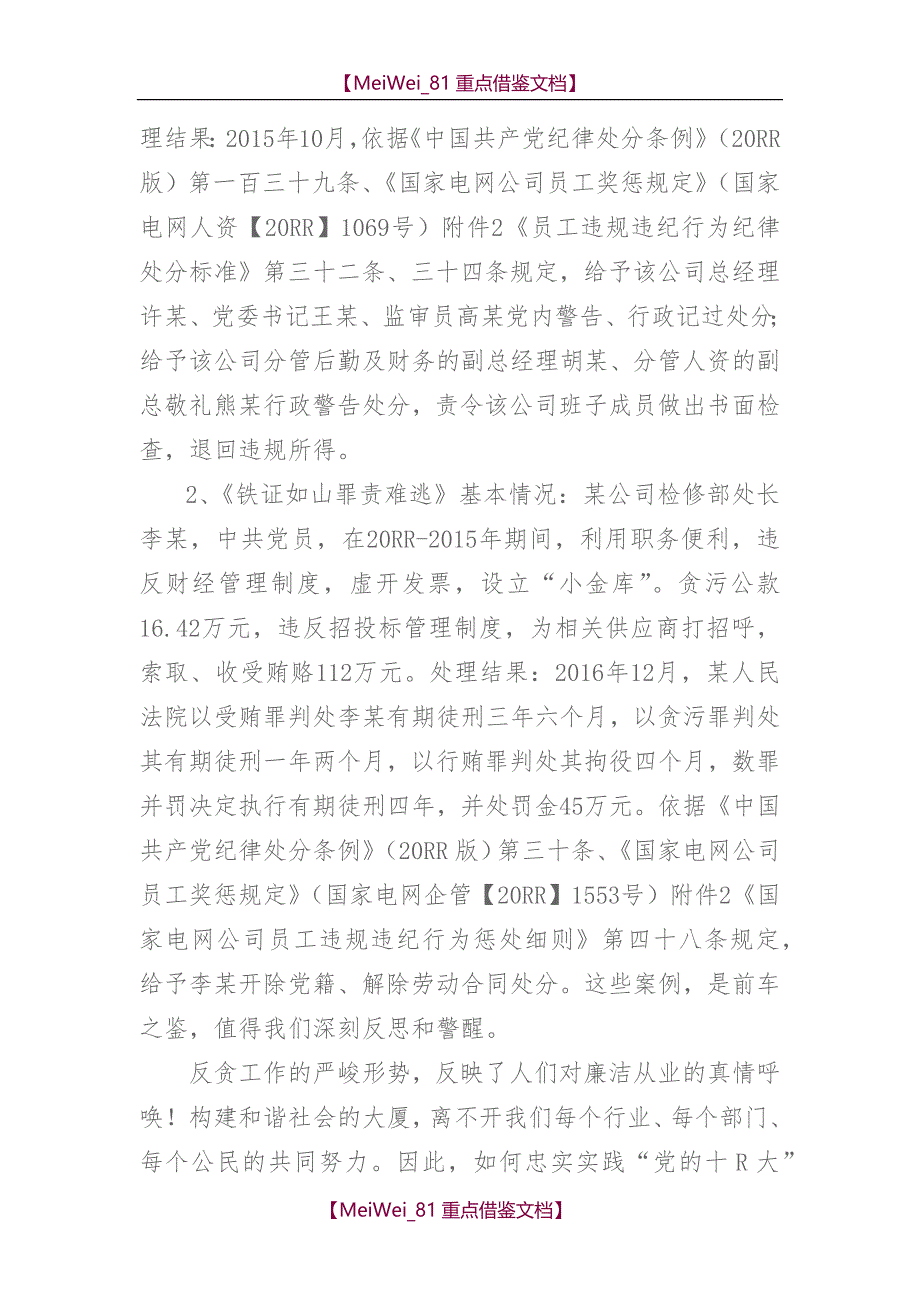 【MeiWei_81重点借鉴文档】
理结果：2015年10月,依据《中国共产党纪律处分条例》（20RR
版）第一百三十九条、《国家电网公司员工奖惩规定》（国家
电网人资【20RR】1069号）附件2《员工违规违纪行为纪律
处分标准》第三十二条、三十四条规定，给予该公司总经理
许某、党委书记王某、监审员高某党内警告、行政记过处分；
给予该公司分管后勤及财务的副总经理胡某、分管人资的副
总敬礼熊某行政警告处分，责令该公司班子成员做出书面检
查，退回违规所得。
2、《铁证如山罪责难逃》基本情况：某公司检修部处长
李某，中共党员，在20RR-2015年期间，利用职务便利，违
反财经管理制度，虚开发票，设立“小金库”。贪污公款
16.42万元，违反招投标管理制度，为相关供应商打招呼，
索取、收受贿赂112万元。处理结果：2016年12月，某人民
法院以受贿罪判处李某有期徒刑三年六个月，以贪污罪判处
其有期徒刑一年两个月，以行贿罪判处其拘役四个月，数罪
并罚决定执行有期徒刑四年，并处罚金45万元。依据《中国
共产党纪律处分条例》（20RR版）第三十条、《国家电网公司
员工奖惩规定》（国家电网企管【20RR】1553号）附件2《国
家电网公司员工违规违纪行为惩处细则》第四十八条规定，
给予李某开除党籍、解除劳动合同处分。这些案例，是前车
之鉴，值得我们深刻反思和警醒。
反贪工作的严峻形势，反映了人们对廉洁从业的真情呼
唤！构建和谐社会的大厦，离不开我们每个行业、每个部门、
每个公民的共同努力。因此，如何忠实实践“党的十R大”
【MeiWei_81重点借鉴文档】